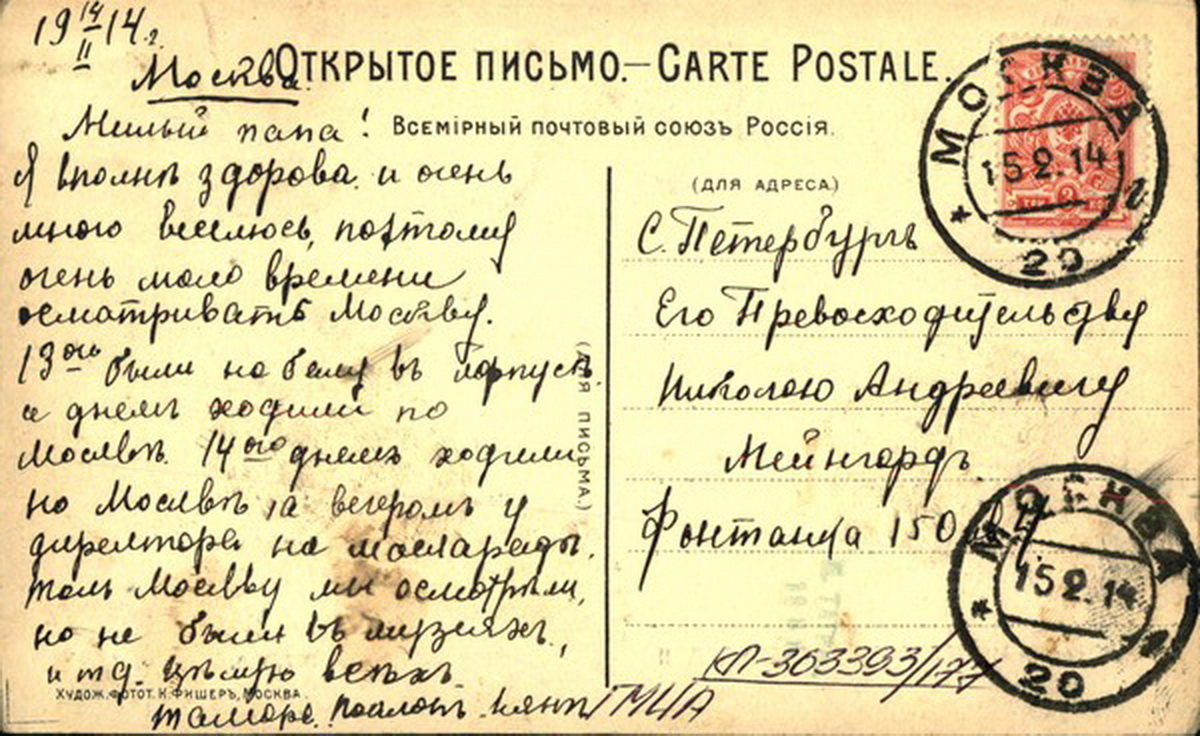 19 14/II 14 г.
Москва.
ОТКРЫТОЕ ПИСЬМО.—CARTE POSTALE.
ВСЕМІРНЫЙ ПОЧТОВЫЙ СОЮЗЪ РОССІЯ.
Милый папа!
Я вполнѣ здорова и очень
много веселюсь, поэтому
очень мало времени
осматривать Москву.
13ого были на балу въ корпусѣ,
а днемъ ходили по
Москвѣ. 14ого днемъ ходили
по Москвѣ, а вечеромъ у
директора на маскарады.
Москву мы осмотрѣли,
но не были въ музеяхъ,
и т д. Цѣлую всѣхъ
Тамара.
ХУДОЖ. ФОТОТ. К. ФИШЕРЪ, МОСКВА.
(ДЛЯ ПИСЬМА.)
(ДЛЯ АДРЕСА.)
С. Петербургъ
Его Превосходительству
Николаю Андреевичу
Мейнгардъ
Фонтанка 150
КП-363393/177
ГМЦА
МОСКВА
15 2. 14
20
МОСКВА
15 2. 14
20